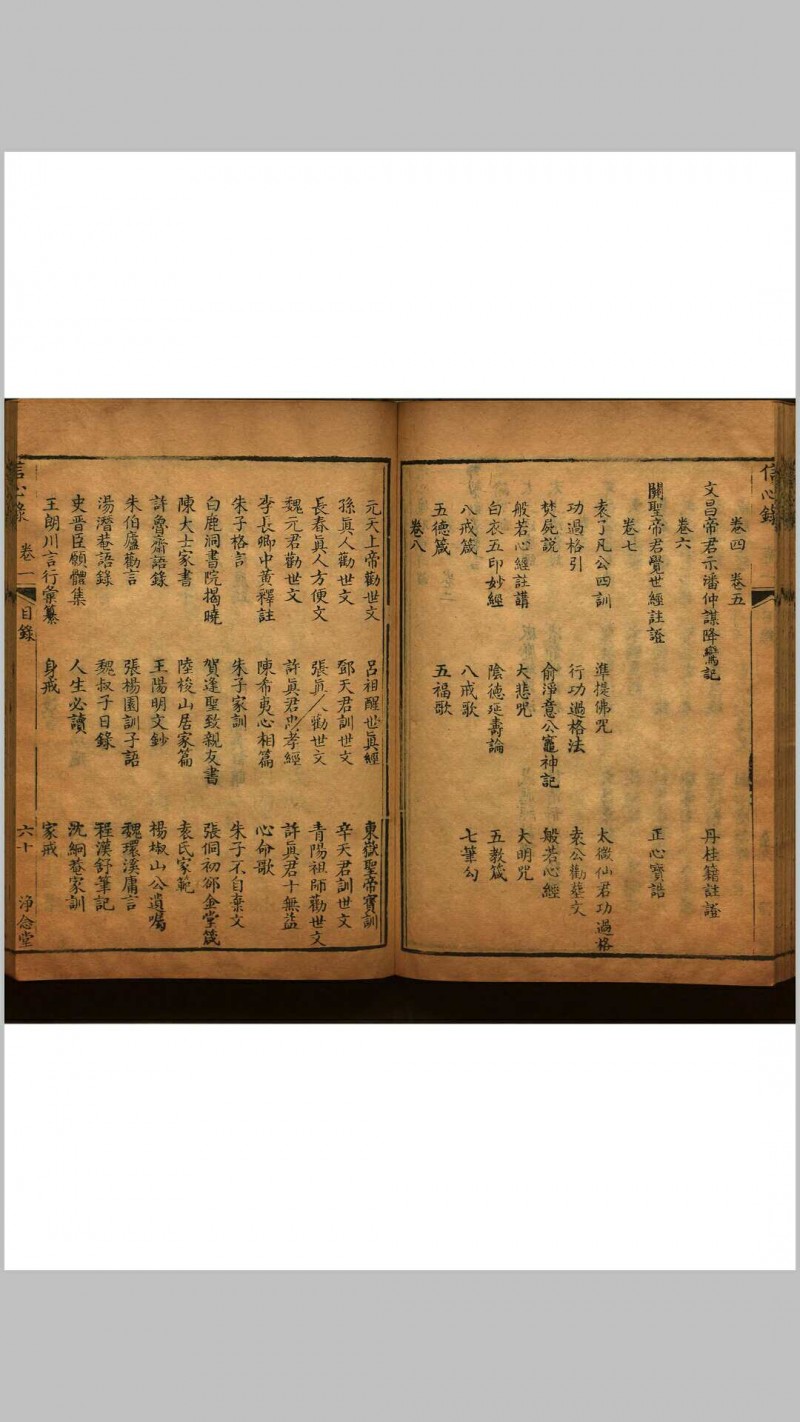 信心錄
卷四　卷五
文昌帝君示潘仲謀降鸞記　丹桂籍註證
卷六
關聖帝君覺世經註證　正心寶誥
卷七
袁了凡公四訓　準提佛咒　太微仙君功過格
功過格引　行功過格法　袁公勸葬文
焚屍說　俞淨意公竈神記　般若心經
般若心經註講　大悲咒　大明咒
白衣五印妙經　陰德延壽論　五教箴
八戒箴　八戒歌　七筆勾
五德箴　五福歌
卷八
元天上帝勸世文　呂祖醒世眞經　東嶽聖帝寶訓
孫眞人勸世文　鄧天君訓世文　辛天君訓世文
長春眞人方便文　張眞人勸世文　青陽祖師勸世文
魏元君勸世文　許眞君忠孝經　許眞君十無益
李長卿中黃釋註　陳希夷心相篇　心命歌
朱子格言　朱子家訓　朱子不自棄文
白鹿洞書院揭曉　賀逢聖致親友書　張侗初卻金堂箴
陳大士家書　陸梭山居家篇　袁氏家範
許魯齋語錄　王陽明文鈔　楊椒山公遺囑
朱伯廬勸言　張楊園訓子語　魏環溪庸言
湯潛菴語錄　魏叔子日錄　程漢舒筆記
史晋臣願體集　人生必讀　沈絅菴家訓
王朗川言行彙纂　身戒　家戒
信心錄　卷一　目錄　六十　淨念堂